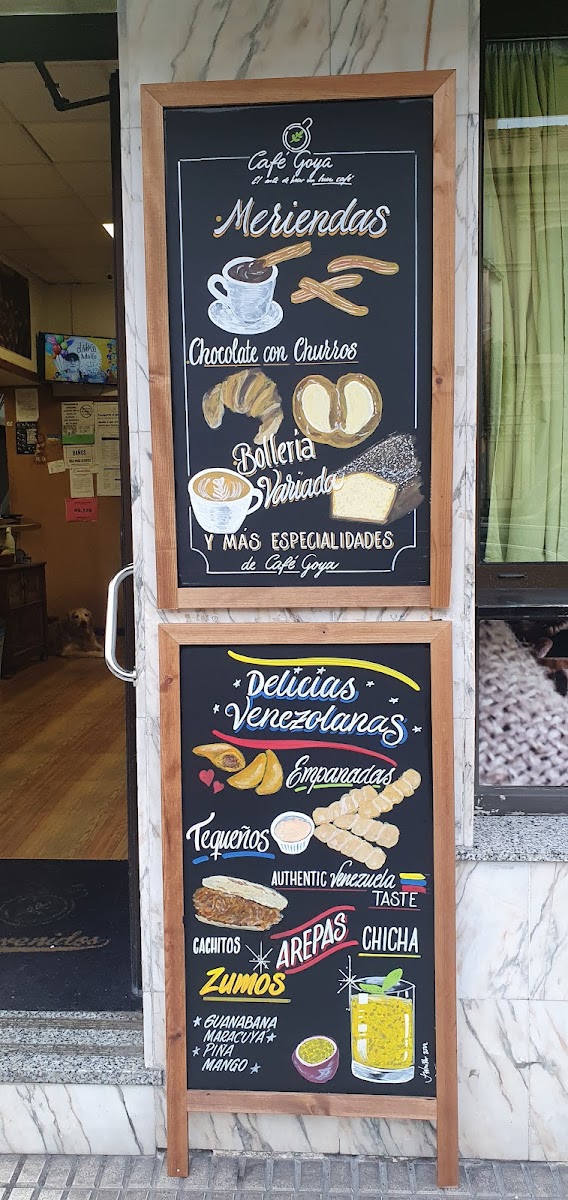 Café Goya
El arte de hacer un buen café
Meriendas
Chocolate con Churros
Bollería
Variada
Y MÁS ESPECIALIDADES
de Café Goya
BAÑOS
Delicias
Venezolanas
Empanadas
Tequeños
AUTHENTIC Venezuela
TASTE
CACHITOS
AREPAS
CHICHA
Zumos
GUANABANA
MARACUYA
PIÑA
MANGO